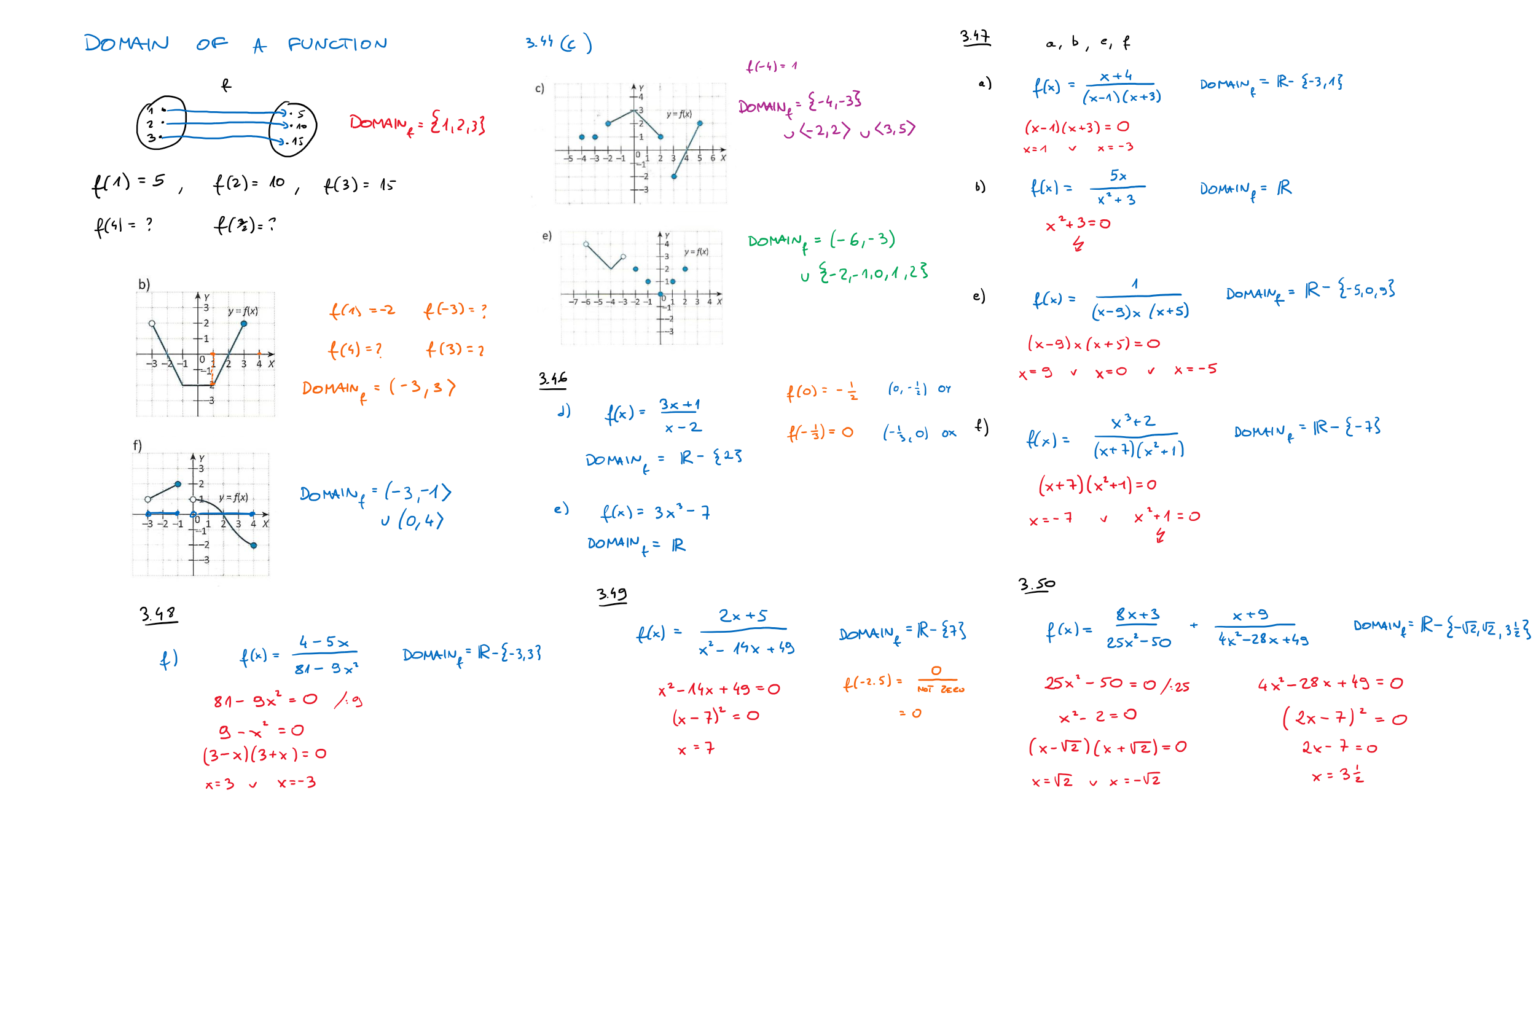 DOMAIN OF A FUNCTION
f
1 5
2 10
3 15
DOMAIN_f = {1,2,3}
f(1) = 5 , f(2) = 10 , f(3) = 15
f(4) = ? f(3/2) = ?
b)
y = f(x)
f(1) = -2 f(-3) = ?
f(4) = ? f(3) = 2
DOMAIN_f = (-3, 3>
f)
y = f(x)
DOMAIN_f = (-3, -1>
∪ (0, 4>
3.44 (c)
c)
y = f(x)
f(-4) = 1
DOMAIN_f = {-4, -3}
∪ <-2, 2> ∪ <3, 5>
e)
y = f(x)
DOMAIN_f = (-6, -3)
∪ {-2, -1, 0, 1, 2}
3.46
d) f(x) = (3x+1)/(x-2)
f(0) = -1/2 (0, -1/2) OY
f(-1/3) = 0 (-1/3, 0) OX
DOMAIN_f = ℝ - {2}
e) f(x) = 3x³ - 7
DOMAIN_f = ℝ
3.47 a, b, e, f
a) f(x) = (x+4)/((x-1)(x+3)) DOMAIN_f = ℝ - {-3, 1}
(x-1)(x+3) = 0
x = 1 ∨ x = -3
b) f(x) = 5x/(x²+3) DOMAIN_f = ℝ
x² + 3 = 0
e) f(x) = 1/((x-9)x(x+5)) DOMAIN_f = ℝ - {-5, 0, 9}
(x-9)x(x+5) = 0
x = 9 ∨ x = 0 ∨ x = -5
f) f(x) = (x³+2)/((x+7)(x²+1)) DOMAIN_f = ℝ - {-7}
(x+7)(x²+1) = 0
x = -7 ∨ x² + 1 = 0
3.48
f) f(x) = (4-5x)/(81-9x²) DOMAIN_f = ℝ - {-3, 3}
81 - 9x² = 0 /:9
9 - x² = 0
(3-x)(3+x) = 0
x = 3 ∨ x = -3
3.49
f(x) = (2x+5)/(x²-14x+49) DOMAIN_f = ℝ - {7}
x² - 14x + 49 = 0
(x-7)² = 0
x = 7
f(-2.5) = 0/NOT ZERO
= 0
3.50
f(x) = (8x+3)/(25x²-50) + (x+9)/(4x²-28x+49) DOMAIN_f = ℝ - {-√2, √2, 3 1/2}
25x² - 50 = 0 /:25
x² - 2 = 0
(x-√2)(x+√2) = 0
x = √2 ∨ x = -√2
4x² - 28x + 49 = 0
(2x-7)² = 0
2x - 7 = 0
x = 3 1/2